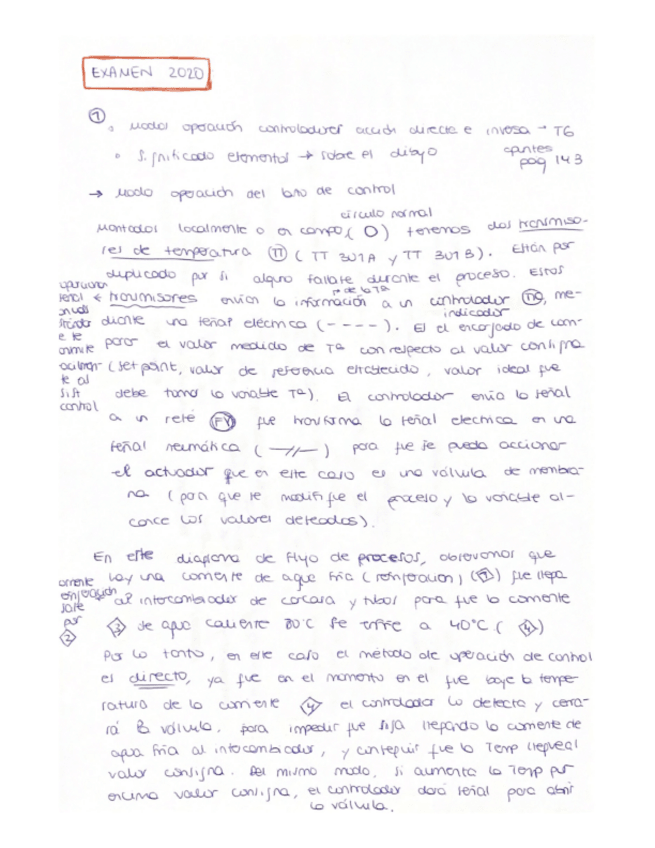 EXAMEN 2020
①
◦ Modos operación controladores acción directa e inversa → T6
apuntes
pag 143
◦ Significado elementos → sobre el dibujo
→ Modo operación del lazo de control
círculo normal
Montados localmente o en campo (O) tenemos dos transmiso-
res de temperatura (TT) (TT 301A y TT 301B). Están por
duplicado por si alguno fallase durante el proceso. Estos
→ de la Tª
transmisores envían la información a un controlador, me-
indicador
diante una señal eléctrica (- - - -). Es el encargado de com-
parar el valor medido de Tª con respecto al valor consigna
(set point, valor de referencia establecido, valor ideal que
debe tomar la variable Tª). El controlador envía la señal
a un relé (FY) que transforma la señal eléctrica en una
señal neumática (—//—) para que se pueda accionar
el actuador que en este caso es una válvula de membra-
na (para que se modifique el proceso y la variable al-
cance los valores deseados).
te al
sist
control
En este diagrama de flujo de procesos, observamos que
hay una corriente de agua fría (refrigeración) (1) que llega
al intercambiador de carcasa y tubos para que la corriente
3 de agua caliente 80°C se enfríe a 40°C (4)
corriente
refrigeración
sale
por
2
Por lo tanto, en este caso el método de operación de control
es directo, ya que en el momento en el que baje la tempe-
ratura de la corriente 4 el controlador lo detecta y cerra-
rá la válvula, para impedir que siga llegando la corriente de
agua fría al intercambiador, y conseguir que la Temp llegue al
valor consigna. Del mismo modo, si aumenta la Temp por
encima valor consigna, el controlador dará señal para abrir
la válvula.